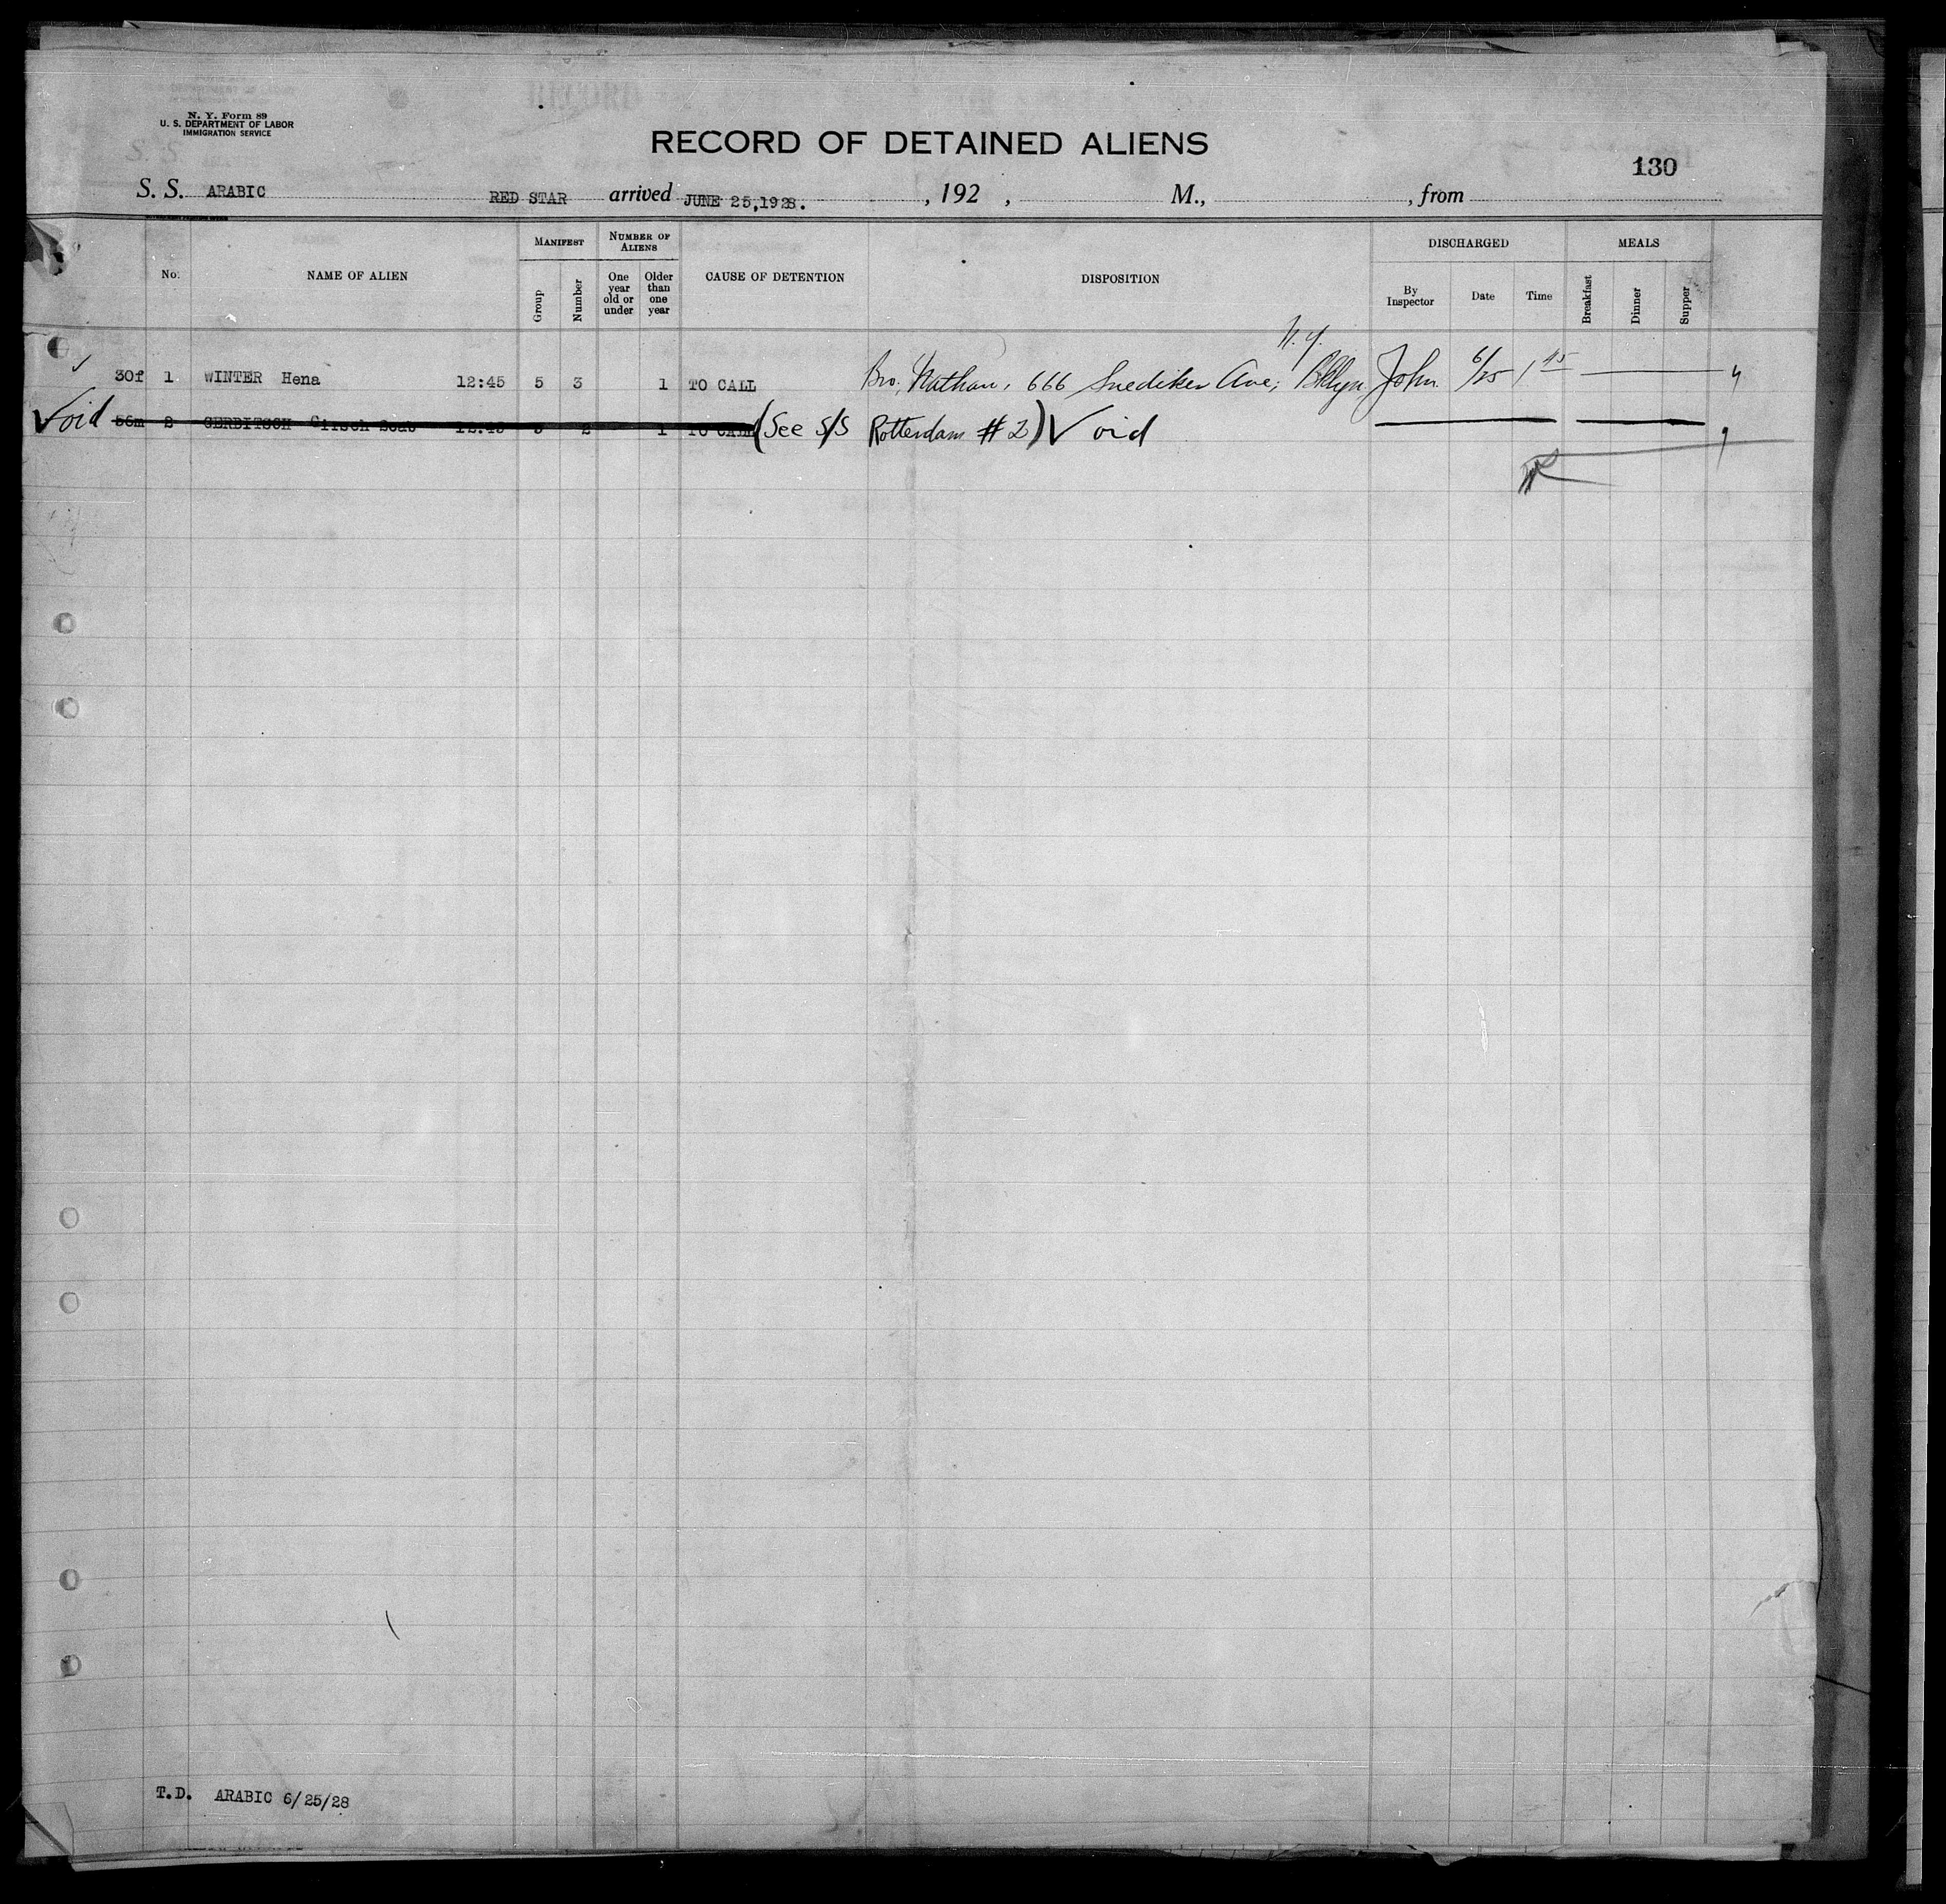 N. Y. Form 89
U. S. DEPARTMENT OF LABOR
IMMIGRATION SERVICE
RECORD OF DETAINED ALIENS
130
S. S. ARABIC RED STAR arrived JUNE 25,1928. , 192 , M., , from
No. NAME OF ALIEN MANIFEST Group Number NUMBER OF ALIENS One year old or under Older than one year CAUSE OF DETENTION DISPOSITION DISCHARGED By Inspector Date Time MEALS Breakfast Dinner Supper
N.Y.
30f 1 WINTER Hena 12:45 5 3 1 TO CALL Bro, Nathan, 666 Snediker Ave, Bklyn John 6/25 1 45
Void 56m 2 GERBITSCH 12:45 5 2 1 TO CALL (See S/S Rotterdam # 2) Void
T.D. ARABIC 6/25/28